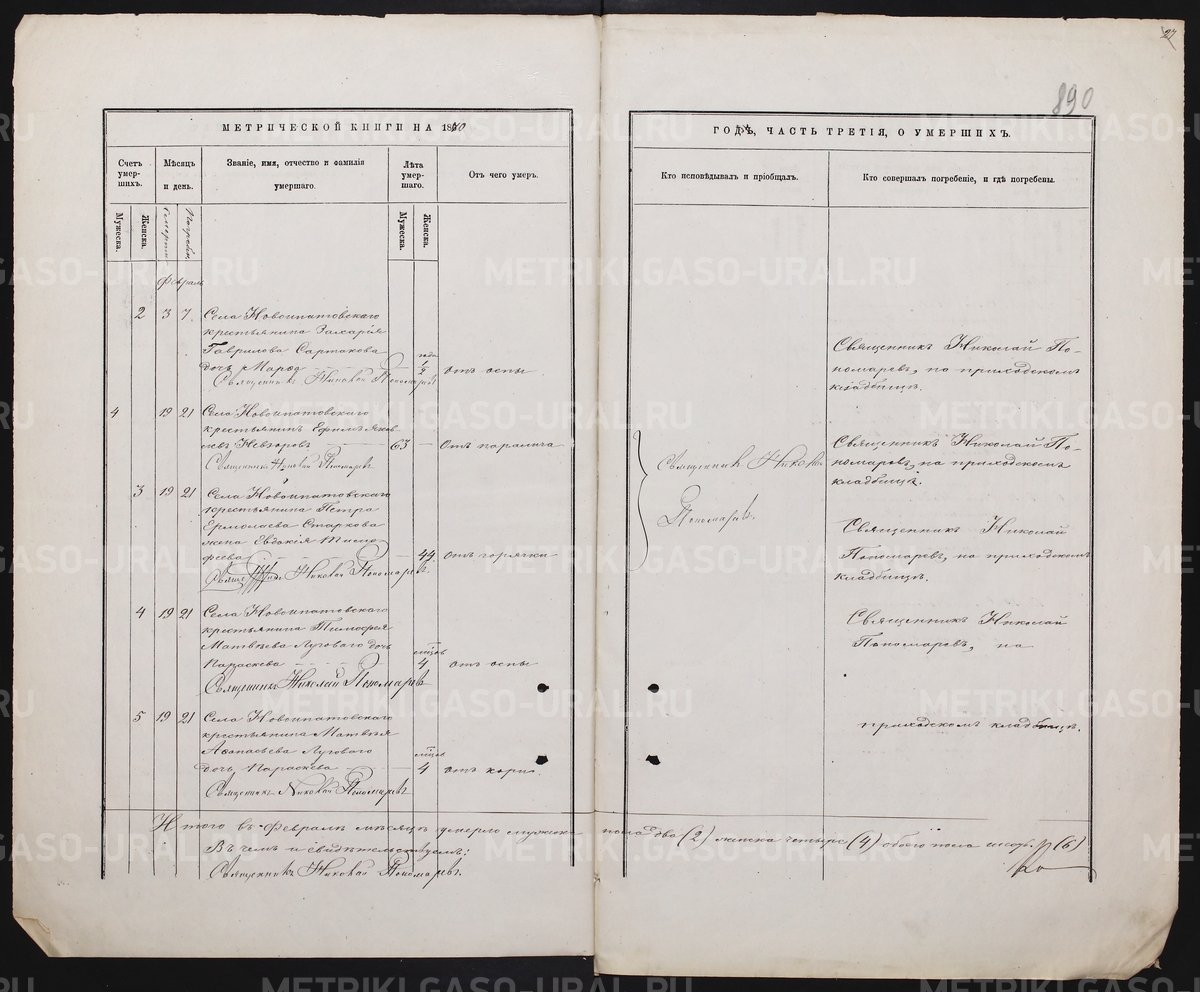 27
890
МЕТРИЧЕСКОЙ КНИГИ НА 1880
Счетъ умер-шихъ.
Мѣсяцъ и день.
Званіе, имя, отчество и фамилія умершаго.
Лѣта умер-шаго.
Отъ чего умеръ.
Мужеска.
Женска.
Смерти
Погребен.
Мужеска.
Женска.
Февраль
2 3 7. Села Новоипатовскаго
крестьянина Захарія
Гаврилова Сартакова года
дочь 1/2 отъ оспы
Священникъ Николай Пономаревъ
4 19 21 Села Новоипатовскаго
крестьянинъ Ефимъ Яков-
левъ Невзоровъ 63 — Отъ паралича
Священникъ Николай Пономаревъ
3 19 21 Села Новоипатовскаго
крестьянина Петра
Ермолаева Старкова
жена Евдокія Тимо-
феева 44. отъ горячки
Николай Пономаревъ.
4 19 21 Села Новоипатовскаго
крестьянина Тимофея
Матвѣева Лугового дочь мѣсяцъ
Параскева 4 отъ оспы
Священникъ Николай Пономаревъ
5 19 21 Села Новоипатовскаго
крестьянина Матвѣя
Аѳанасьева Лугового мѣсяцъ
дочь Параскева 4 отъ кори.
Священникъ Николай Пономаревъ
Итого въ Февралѣ мѣсяцѣ умерло мужеск
Въ чемъ и свидѣтельствуемъ:
Священникъ Николай Пономаревъ.
ГОДЪ, ЧАСТЬ ТРЕТІЯ, О УМЕРШИХЪ.
Кто исповѣдывалъ и пріобщалъ.
Кто совершалъ погребеніе, и гдѣ погребены.
Священникъ Николай По-
номаревъ, на приходскомъ
кладбищѣ.
Священникъ Николай
Пономаревъ.
Священникъ Николай По-
номаревъ, на приходскомъ
кладбищѣ.
Священникъ Николай
Пономаревъ, на приходскомъ
кладбищѣ.
Священникъ Николай
Пономаревъ, на
приходскомъ кладбищѣ.
пола два (2) женска четыре (4) обоего пола (6)
METRIKI.GASO-URAL.RU